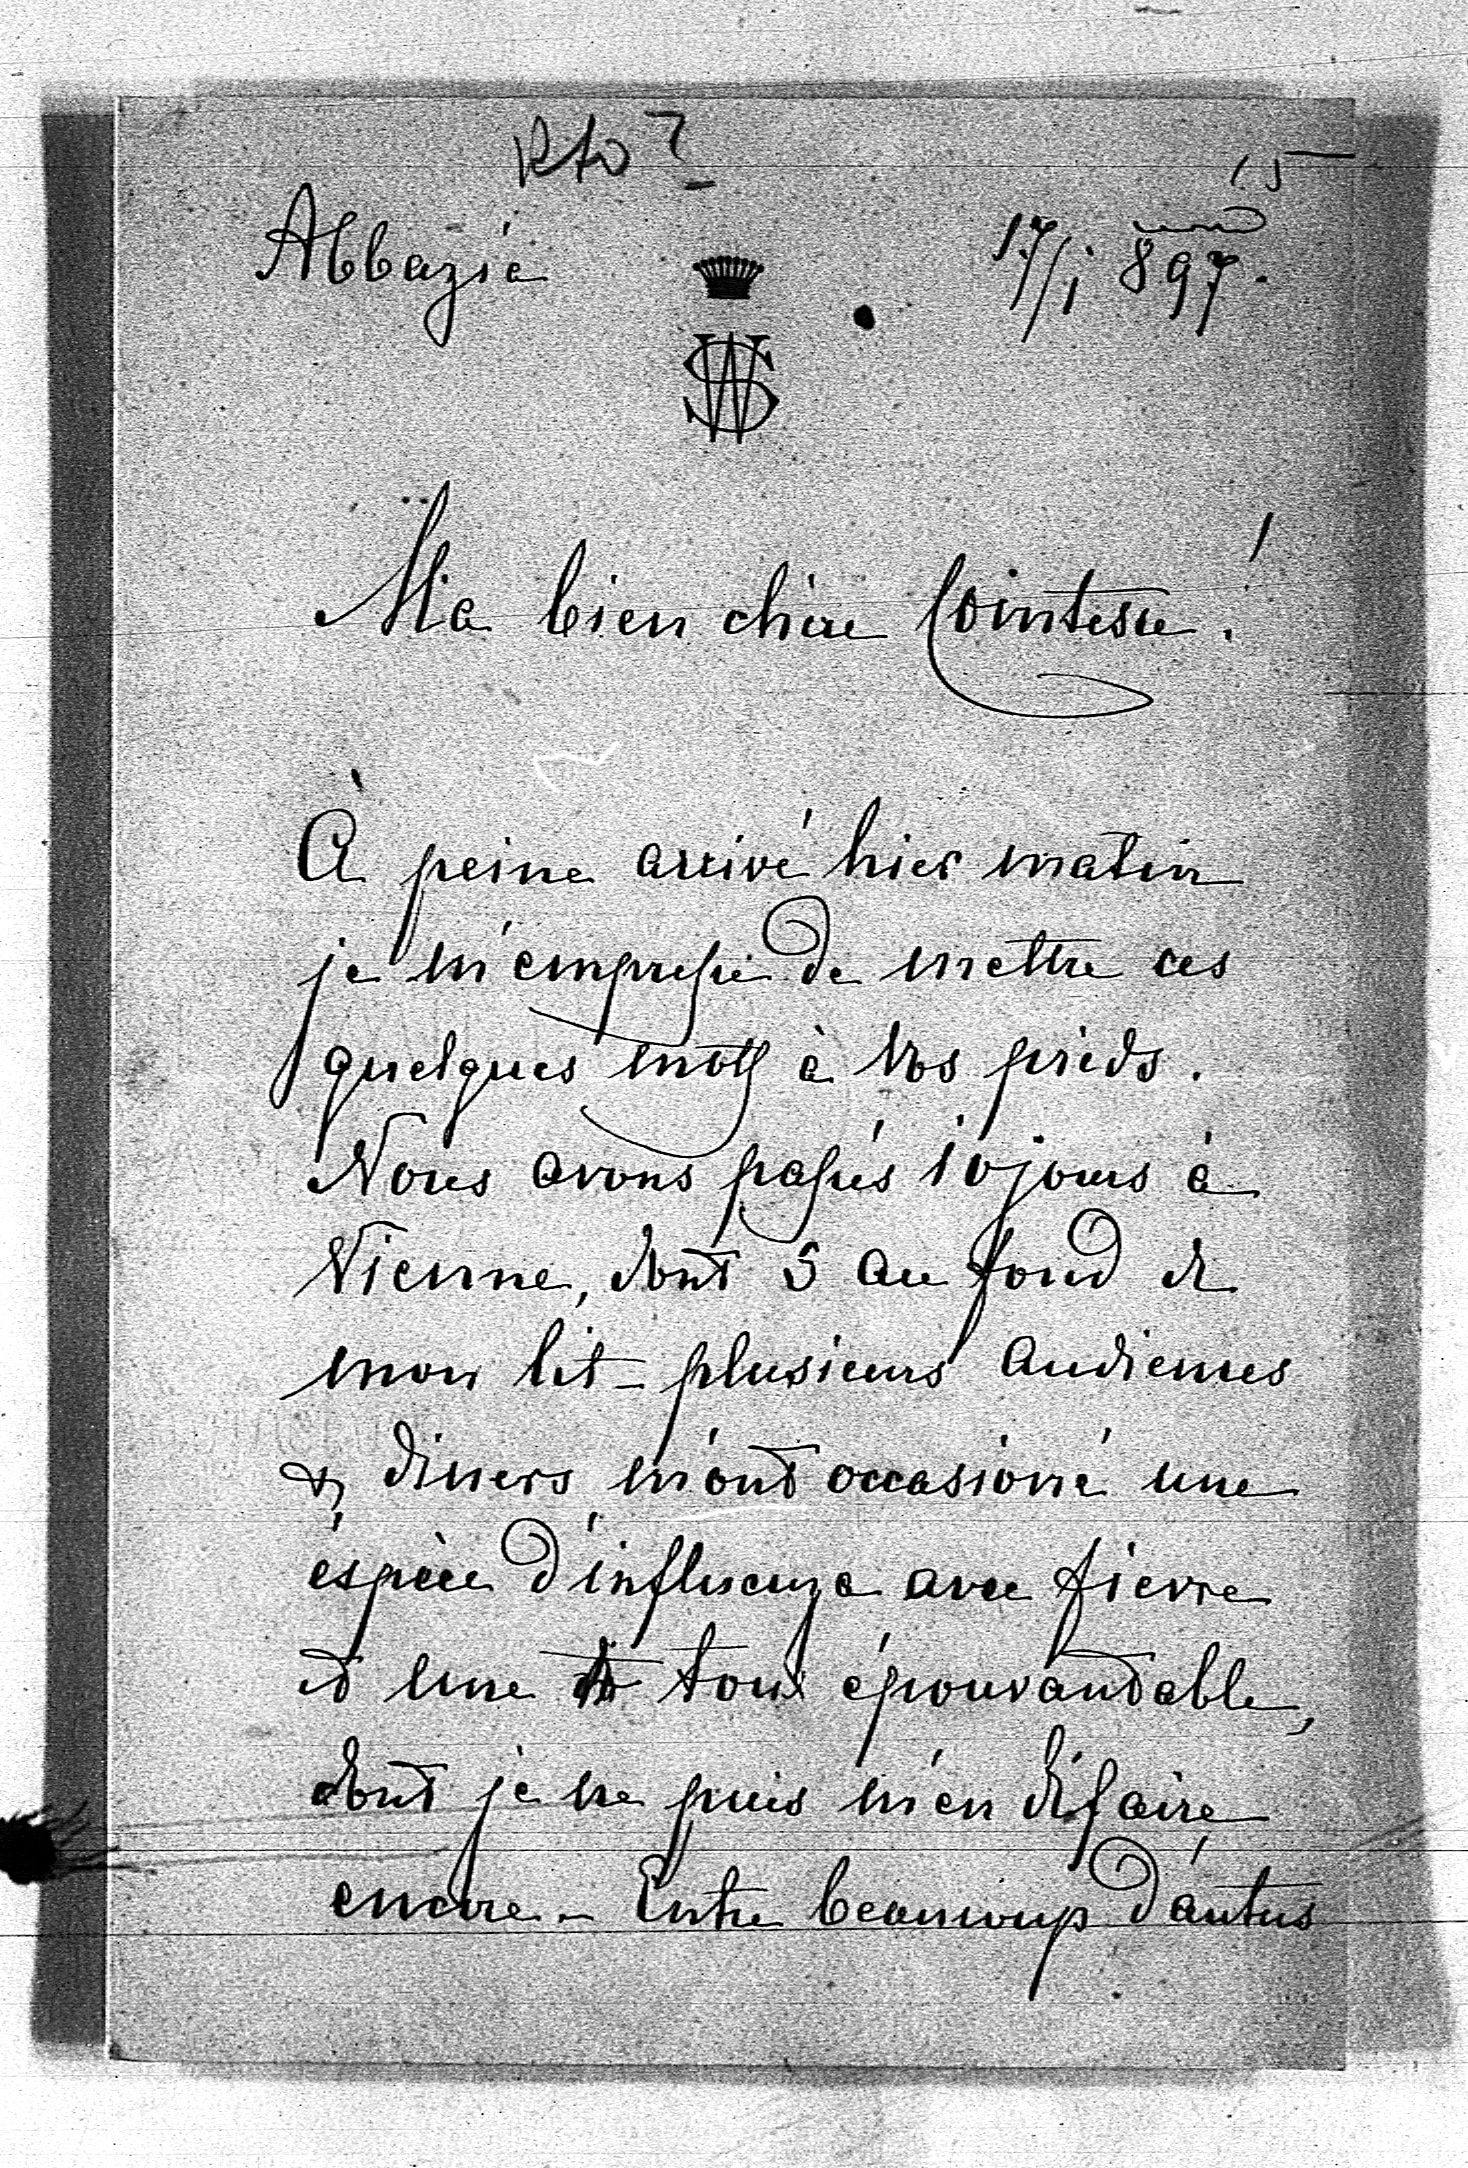 Kto?
15
Abbazia 17/1 897.
WS
Ma bien chère Comtesse!
À peine arrivé hier matin
je m'empresse de mettre ces
quelques mots à Vos pieds.
Nous avons passés 10 jours à
Vienne, dont 5 au fond de
mon lit – plusieurs audiences
& diners m'ont occasioné une
éspèce d'influenza avec fievre
et une toux épouvantable,
dont je ne puis m'en défaire
encore. – Entre beaucoup d'autres